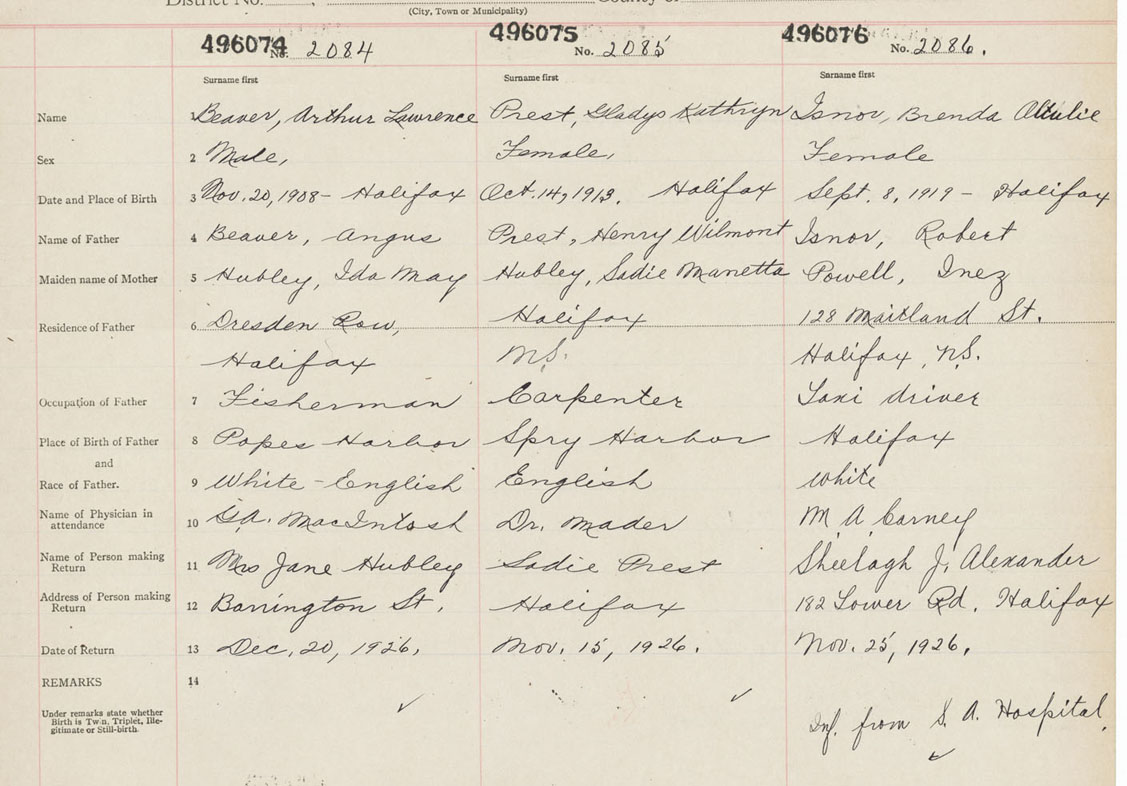 District No. County of
(City, Town or Municipality)
496074 No. 2084 496075 No. 2085 496076 No. 2086.
Surname first Surname first Surname first
Name 1 Beaver, Arthur Lawrence Prest, Gladys Kathryn Isnor, Brenda
Sex 2 Male, Female, Female
Date and Place of Birth 3 Nov. 20, 1908 - Halifax Oct. 14, 1913. Halifax Sept. 8, 1919 - Halifax
Name of Father 4 Beaver, Angus Prest, Henry Wilmont Isnor, Robert
Maiden name of Mother 5 Hubley, Ida May Hubley, Sadie Manetta Powell, Inez
Residence of Father 6 Dresden Row, Halifax 128 Maitland St.
Halifax N.S. Halifax, N.S.
Occupation of Father 7 Fisherman Carpenter Taxi driver
Place of Birth of Father 8 Popes Harbor Spry Harbor Halifax
and
Race of Father. 9 White - English English white
Name of Physician in
attendance 10 G.A. MacIntosh Dr. Mader M A Carney
Name of Person making
Return 11 Mrs Jane Hubley Sadie Prest Sheelagh J. Alexander
Address of Person making
Return 12 Barrington St. Halifax 182 Lower Rd. Halifax
Date of Return 13 Dec. 20, 1926. Nov. 15, 1926. Nov. 25, 1926.
REMARKS 14
Under remarks state whether
Birth is Twin, Triplet, Ille-
gitimate or Still-birth.
Inf. from S. A. Hospital.